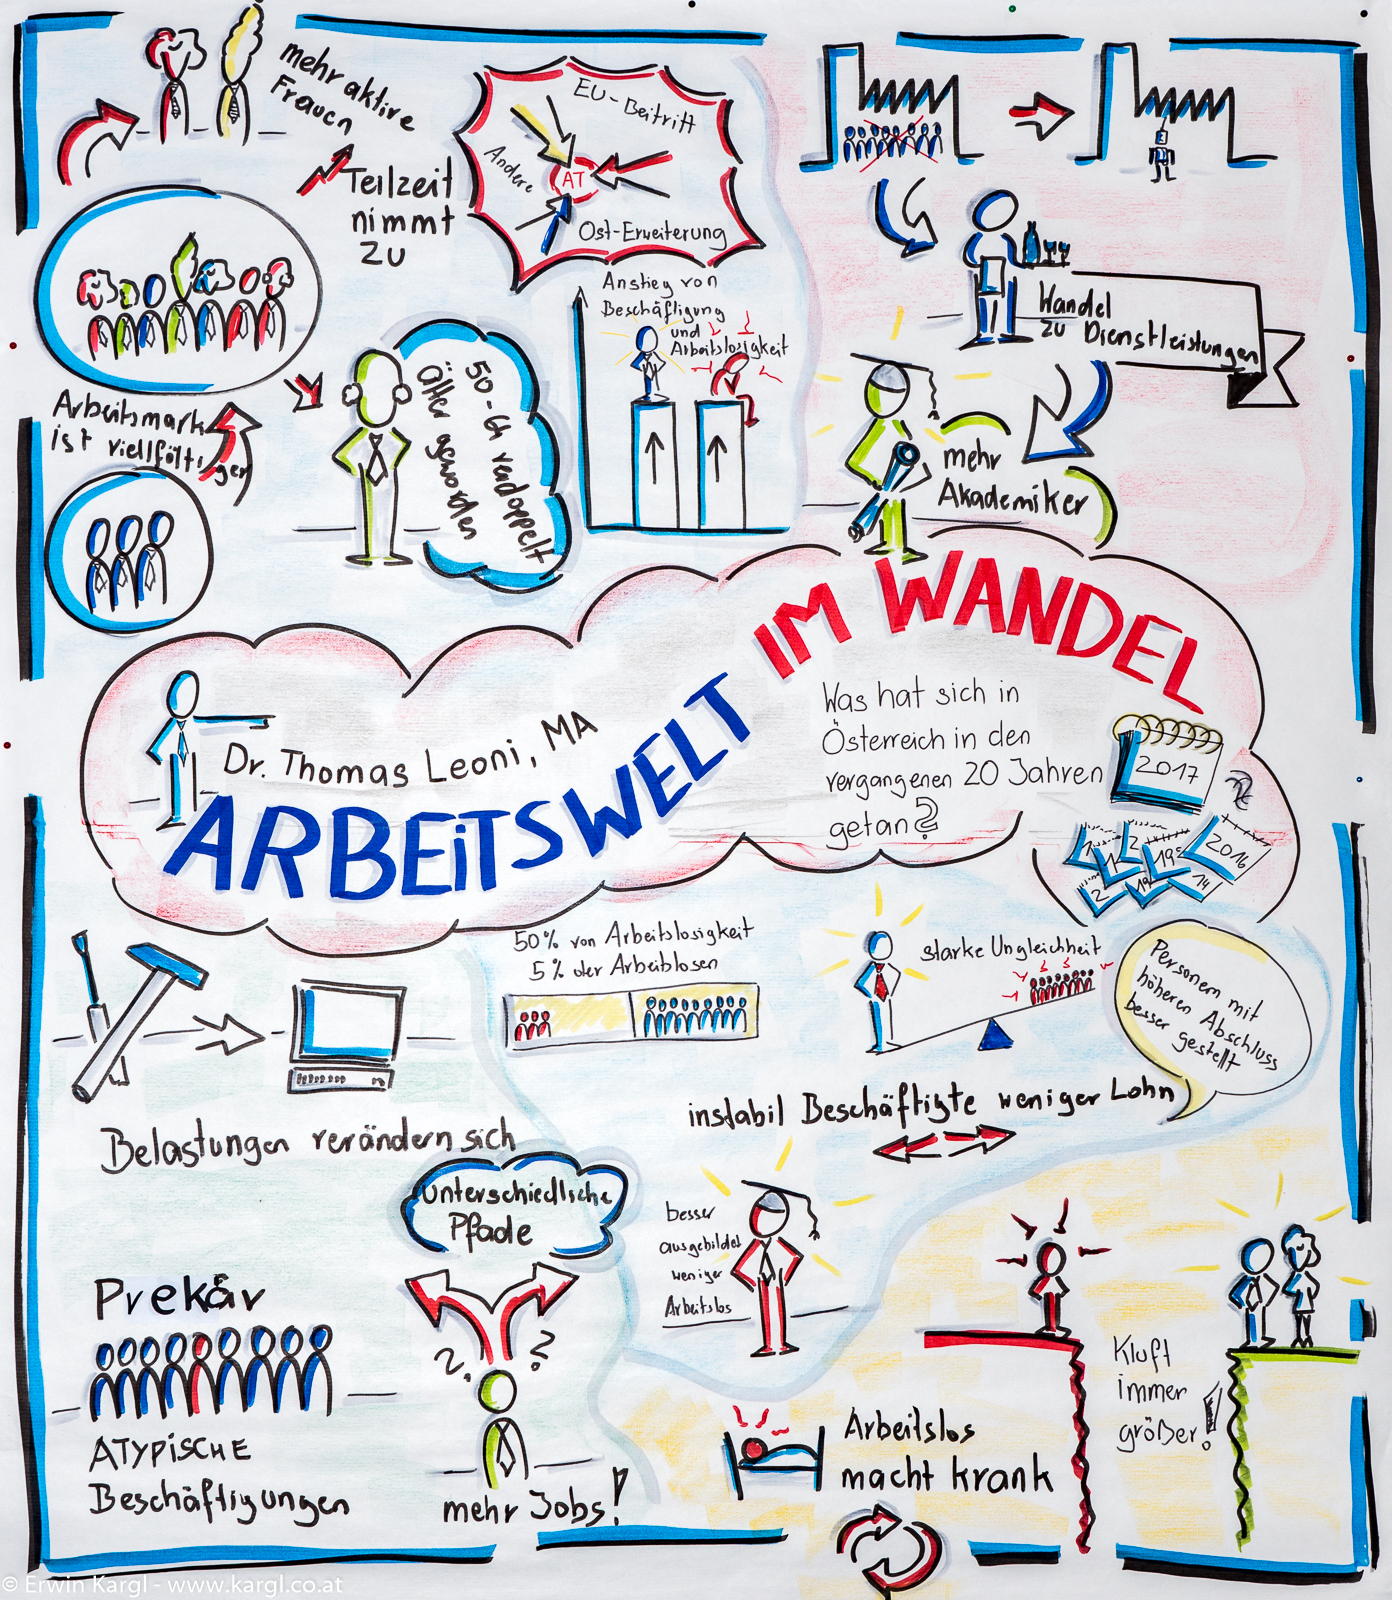 mehr aktive
Frauen
Teilzeit
nimmt
zu
EU-Beitritt
Andere
AT
Ost-Erweiterung
Anstieg von
Beschäftigung
und
Arbeitslosigkeit
Wandel
zu Dienstleistungen
mehr
Akademiker
Arbeitsmarkt
ist vielfältiger
50-64 verdoppelt
älter geworden
ARBEITSWELT IM WANDEL
Dr. Thomas Leoni, MA
Was hat sich in
Österreich in den
vergangenen 20 Jahren
getan?
2017
2016
14
50% von Arbeitslosigkeit
5% der Arbeitlosen
starke Ungleichheit
Personen mit
höheren Abschluss
besser gestellt
instabil Beschäftigte weniger Lohn
Belastungen verändern sich
Unterschiedliche
Pfade
besser
ausgebildet
weniger
Arbeitslos
Prekär
ATYPISCHE
Beschäftigungen
mehr Jobs!
Arbeitslos
macht krank
Kluft
immer
größer!
© Erwin Kargl - www.kargl.co.at